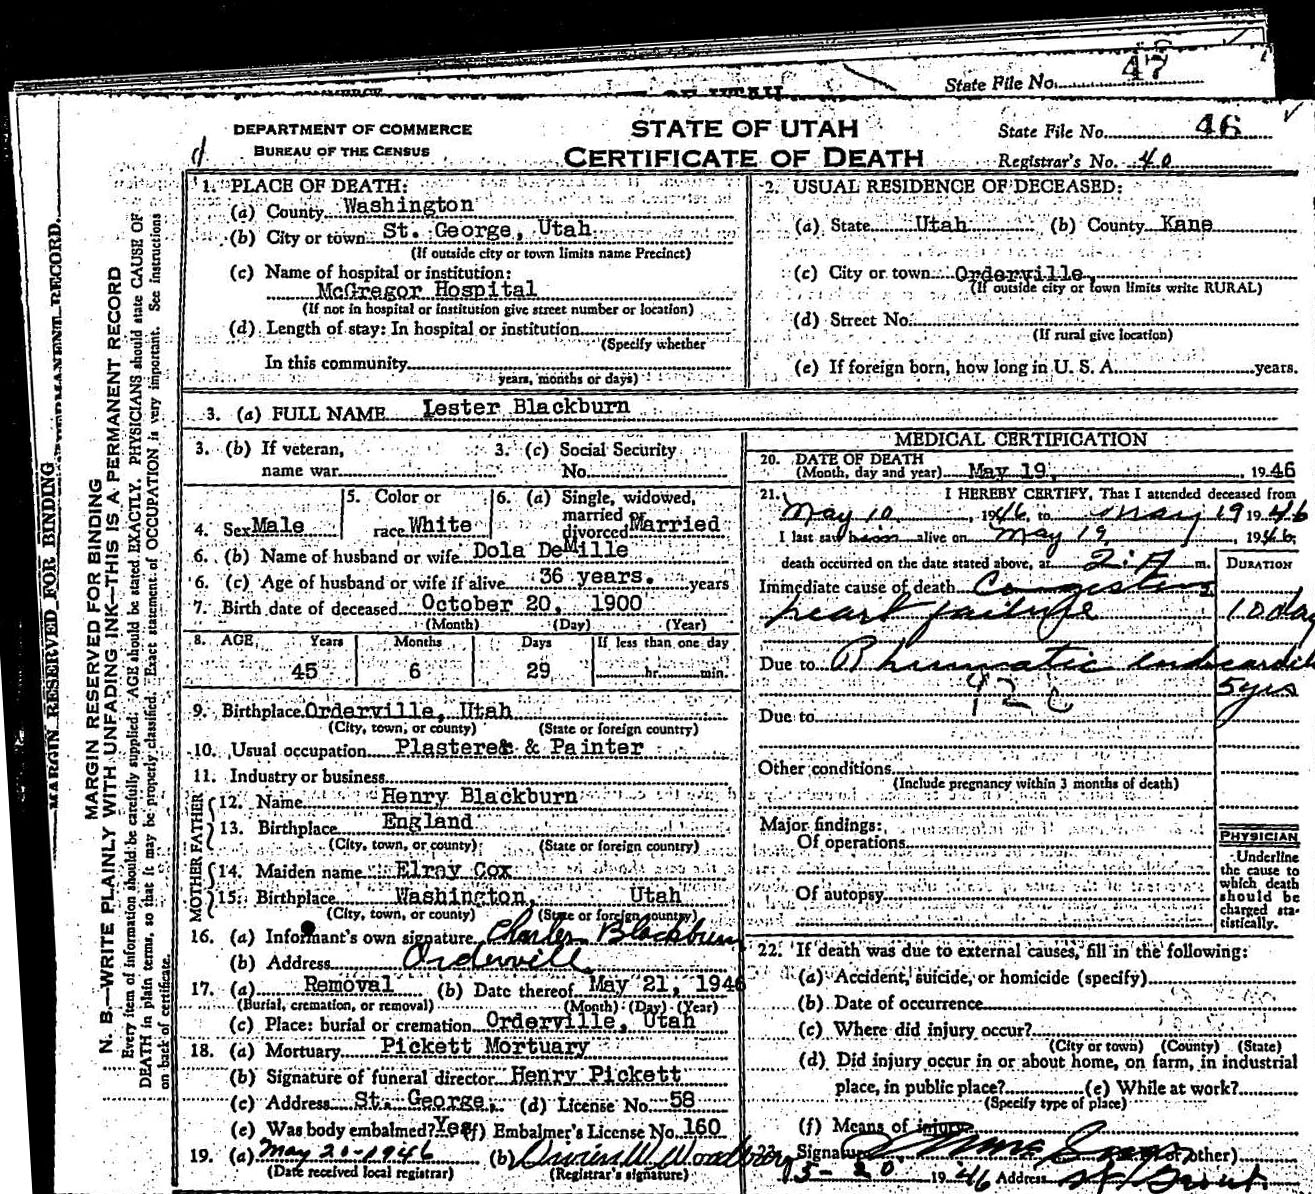 State File No. 47
OF UTAH
DEPARTMENT OF COMMERCE
BUREAU OF THE CENSUS
STATE OF UTAH
CERTIFICATE OF DEATH
State File No. 46
Registrar's No. 40
MARGIN RESERVED FOR BINDING
MARGIN RESERVED FOR BINDING
N. B.—WRITE PLAINLY WITH UNFADING INK—THIS IS A PERMANENT RECORD
Every item of information should be carefully supplied. AGE should be stated EXACTLY. PHYSICIANS should state CAUSE OF
DEATH in plain terms, so that it may be properly classified. Exact statement of OCCUPATION is very important. See instructions
on back of certificate.
1. PLACE OF DEATH:
(a) County Washington
(b) City or town St. George, Utah
(If outside city or town limits name Precinct)
(c) Name of hospital or institution:
McGregor Hospital
(If not in hospital or institution give street number or location)
(d) Length of stay: In hospital or institution
(Specify whether
In this community
years, months or days)
2. USUAL RESIDENCE OF DECEASED:
(a) State Utah (b) County Kane
(c) City or town Orderville,
(If outside city or town limits write RURAL)
(d) Street No.
(If rural give location)
(e) If foreign born, how long in U. S. A. years.
3. (a) FULL NAME Lester Blackburn
3. (b) If veteran,
name war
3. (c) Social Security
No.
4. Sex Male
5. Color or
race White
6. (a) Single, widowed,
married or
divorced Married
6. (b) Name of husband or wife Dola DeMille
6. (c) Age of husband or wife if alive 36 years. years
7. Birth date of deceased October 20, 1900
(Month) (Day) (Year)
8. AGE Years Months Days If less than one day
45 6 29 hr. min.
9. Birthplace Orderville, Utah
(City, town, or county) (State or foreign country)
10. Usual occupation Plasterer & Painter
11. Industry or business
FATHER
12. Name Henry Blackburn
13. Birthplace England
(City, town, or county) (State or foreign country)
MOTHER
14. Maiden name Elray Cox
15. Birthplace Washington, Utah
(City, town, or county) (State or foreign country)
16. (a) Informant's own signature Charles Blackburn
(b) Address Orderville
17. (a) Removal (b) Date thereof May 21, 1946
(Burial, cremation, or removal) (Month) (Day) (Year)
(c) Place: burial or cremation Orderville, Utah
18. (a) Mortuary Pickett Mortuary
(b) Signature of funeral director Henry Pickett
(c) Address St. George, (d) License No. 58
(e) Was body embalmed? Yes (f) Embalmer's License No. 160
19. (a) May 20-1946 (b)
(Date received local registrar) (Registrar's signature)
MEDICAL CERTIFICATION
20. DATE OF DEATH
(Month, day and year) May 19, 1946
21. I HEREBY CERTIFY, That I attended deceased from
May 10, 1946, to May 19 1946
I last saw him alive on May 19, 1946;
death occurred on the date stated above, at 2:A m.
DURATION
Immediate cause of death Congestive
heart failure 10 day
Due to Rhumatic endocardit
5 yrs
42c
Due to
Other conditions
(Include pregnancy within 3 months of death)
Major findings:
Of operations
Of autopsy
PHYSICIAN
Underline
the cause to
which death
should be
charged sta-
tistically.
22. If death was due to external causes, fill in the following:
(a) Accident, suicide, or homicide (specify)
(b) Date of occurrence
(c) Where did injury occur?
(City or town) (County) (State)
(d) Did injury occur in or about home, on farm, in industrial
place, in public place? (e) While at work?
(Specify type of place)
(f) Means of injury
23. Signature or other)
5-20 1946 Address